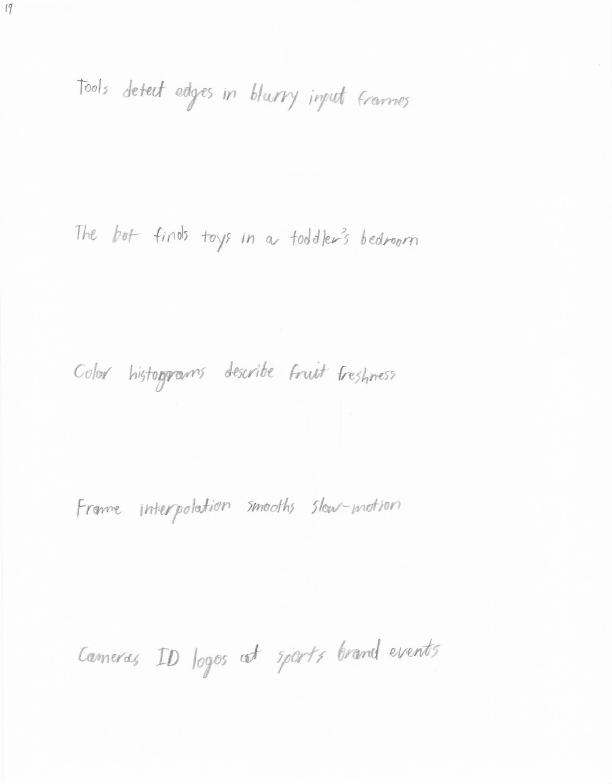 19
Tools detect edges in blurry input frames
The bot finds toys in a toddler's bedroom
Color histograms describe fruit freshness
Frame interpolation smooths slow-motion
Cameras ID logos at sports brand events